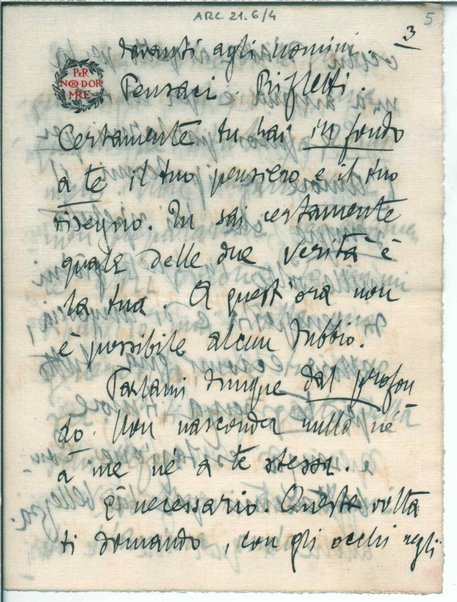 ARC. 21.6/4
3 5
davanti agli uomini.
PER
NON DOR
MIRE
Pensaci Rifletti.
Certamente tu hai in fondo
a te il tuo pensiero e il tuo
disegno. Tu sai certamente
quale delle due verità è
la tua. A quest'ora non
è possibile alcun dubbio.
Parlami dunque dal profon
do. Non nasconder nulla né
a me né a te stessa.
È necessario. Questa volta
ti domando, con gli occhi negli